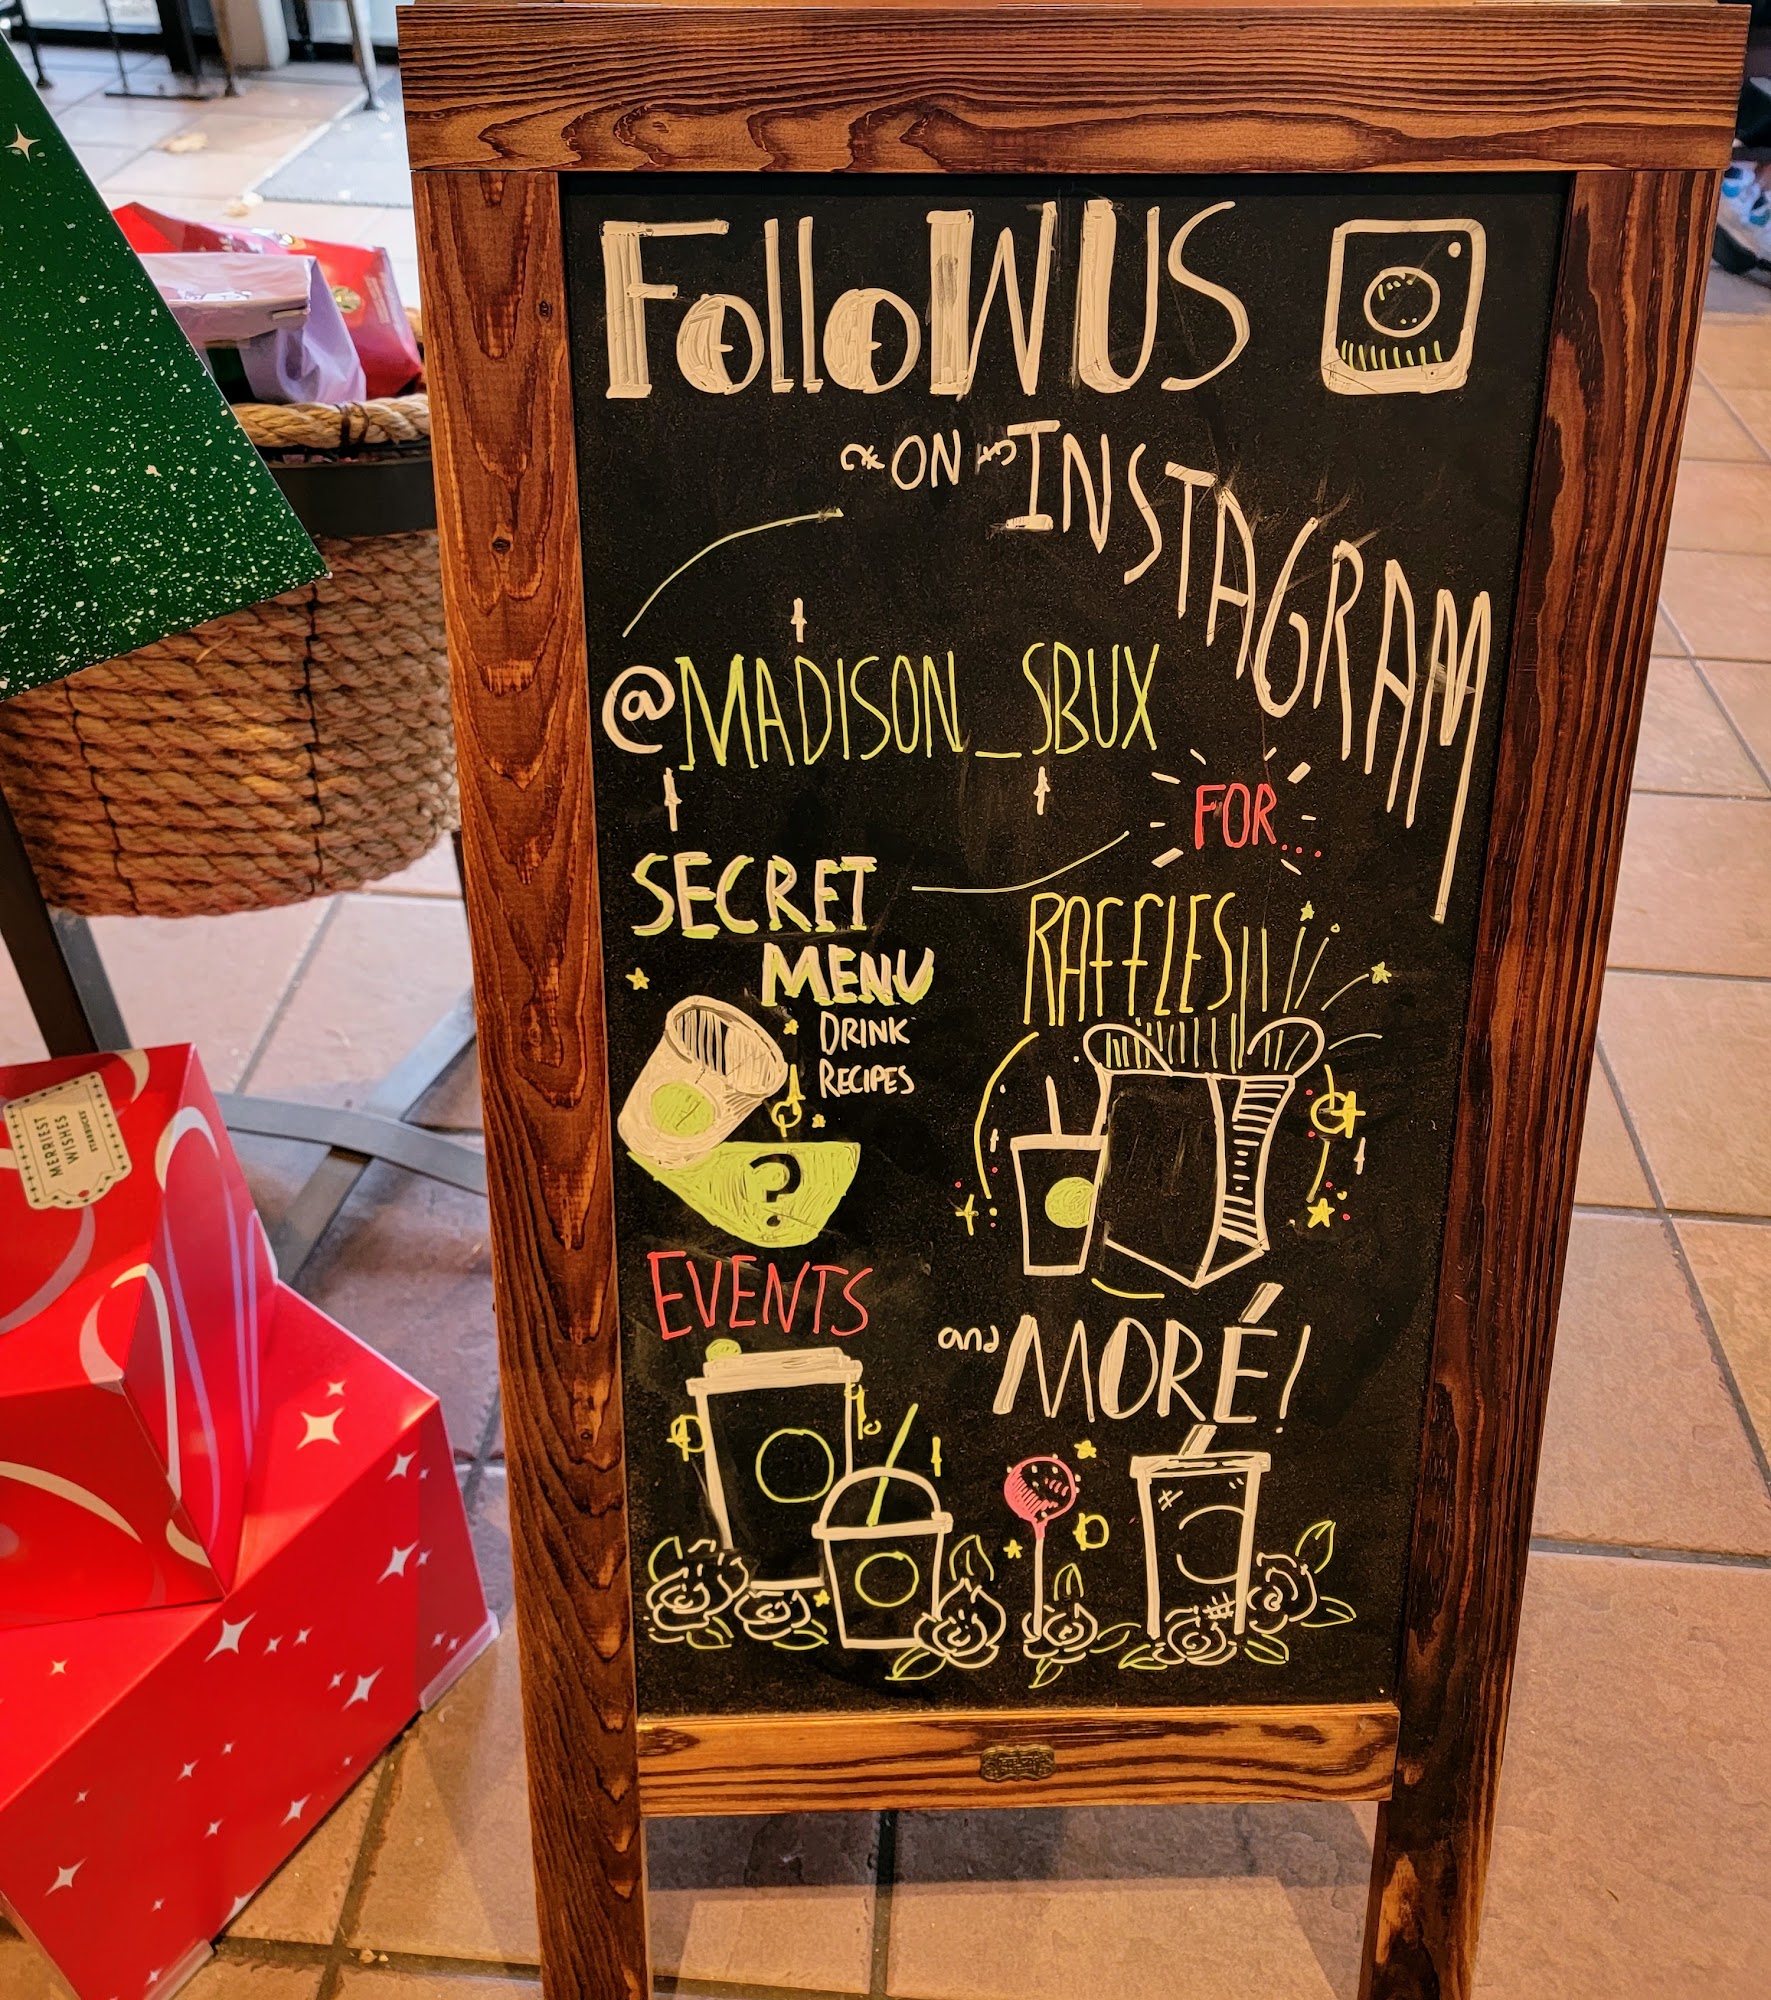 FolloW US
ON INSTAGRAM
@MADISON_SBUX
FOR...
SECRET
MENU
DRINK
RECIPES
?
RAFFLES!!
EVENTS
and MORÉ!
MERRIEST
WISHES
STARBUCKS